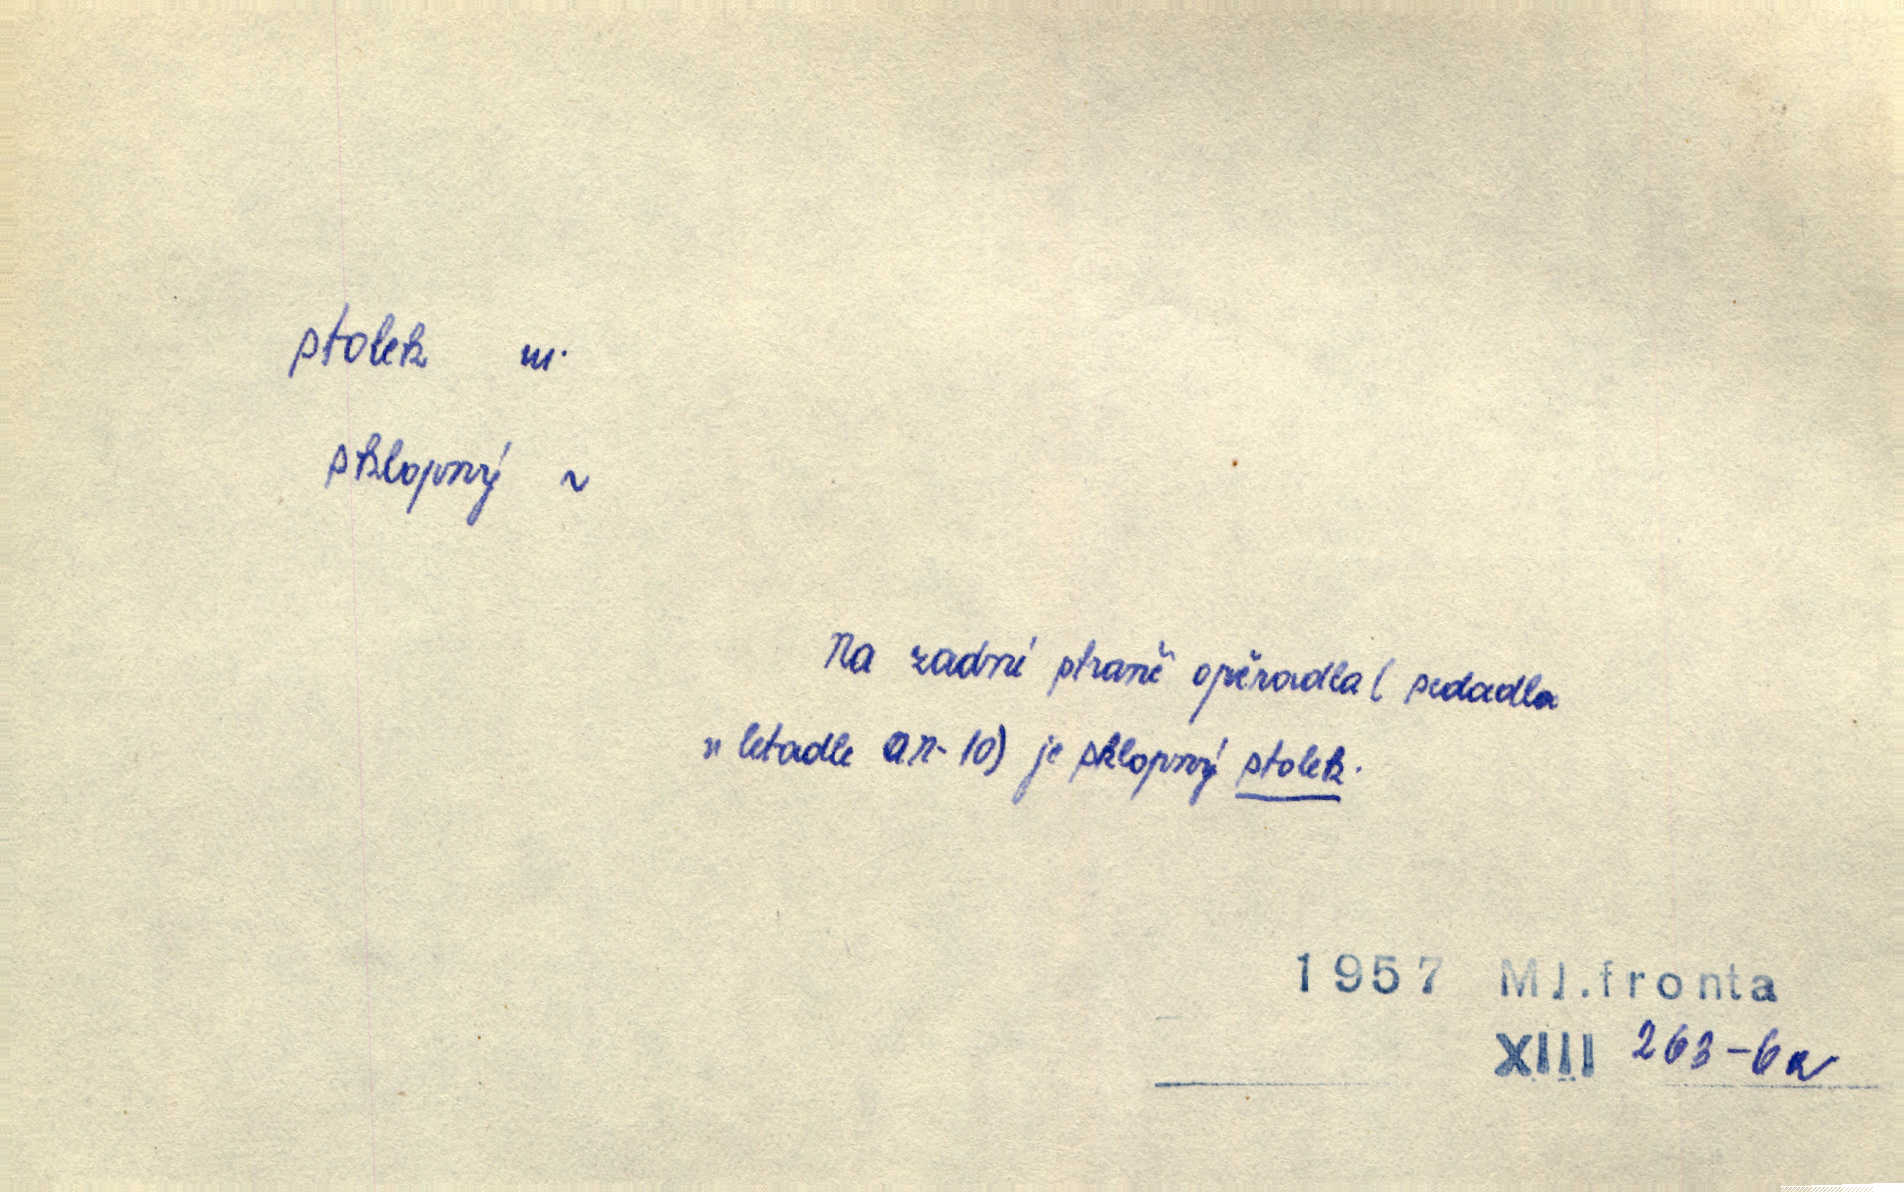 stolek m.
sklopný ~
Na zadní straně opěradla ( sedadla
v letadle An-10) je sklopný stolek.
1957 Ml.fronta
XIII 263-6a